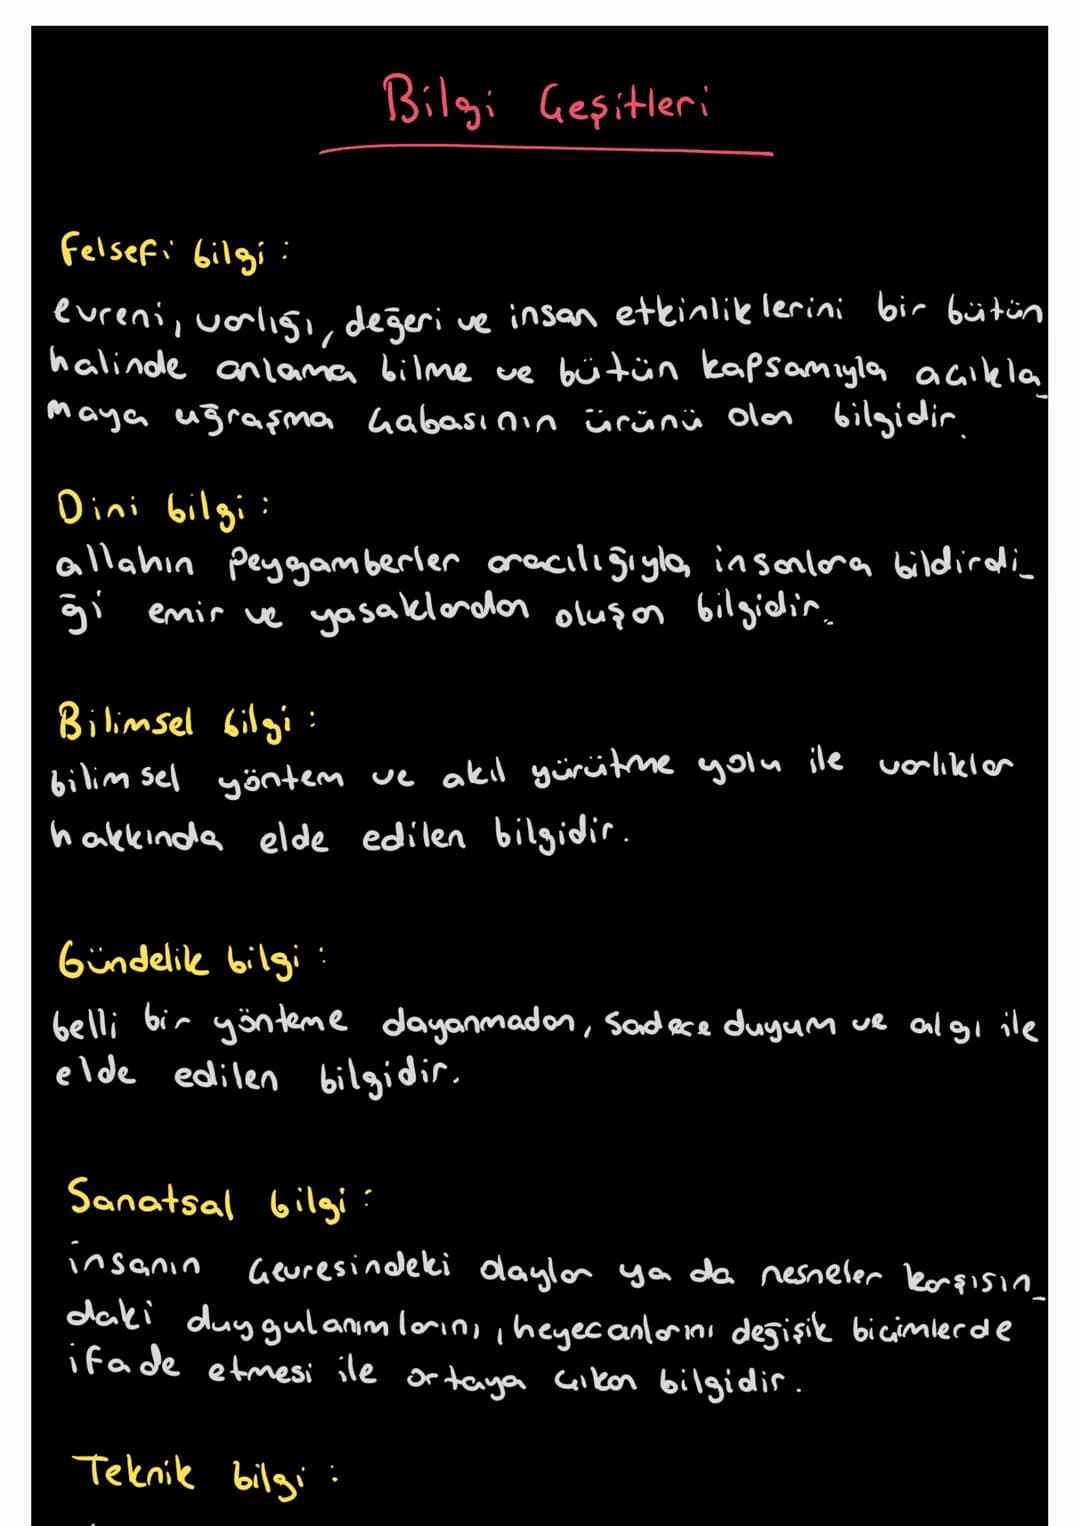 Bilgi Çeşitleri
Felsefi bilgi :
evreni, varlığı, değeri ve insan etkinliklerini bir bütün
halinde anlama bilme ve bütün kapsamıyla açıkla_
maya uğraşma çabasının ürünü olan bilgidir.
Dini bilgi :
allahın peygamberler aracılığıyla insanlara bildirdi_
ği emir ve yasaklardan oluşan bilgidir.
Bilimsel bilgi :
bilimsel yöntem ve akıl yürütme yolu ile varlıklar
hakkında elde edilen bilgidir.
Gündelik bilgi :
belli bir yönteme dayanmadan, sadece duyum ve algı ile
elde edilen bilgidir.
Sanatsal bilgi :
insanın çevresindeki olaylar ya da nesneler karşısın_
daki duygulanımlarını, heyecanlarını değişik biçimlerde
ifade etmesi ile ortaya çıkan bilgidir.
Teknik bilgi :